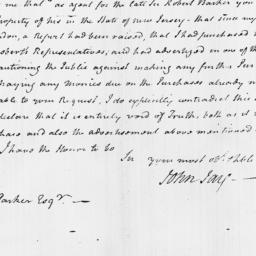 me that as agent for the late Sr Robert Barker you
Property of his in the State of new Jersey - that since my
a Report had been raised, that I had purchased
Roberts Representatives, and had advertized in one of th
autioning the Public against making any further Pur
Paying any Monies due on the Purchases already m
able to your Request, I do explicitly contradict this
declare that it is entirely void of Truth, both as it
chase and also the advertisement above mentioned
I have the Honor to be
Sir your most obt & hble
John Jay -
Parker Esqr. -